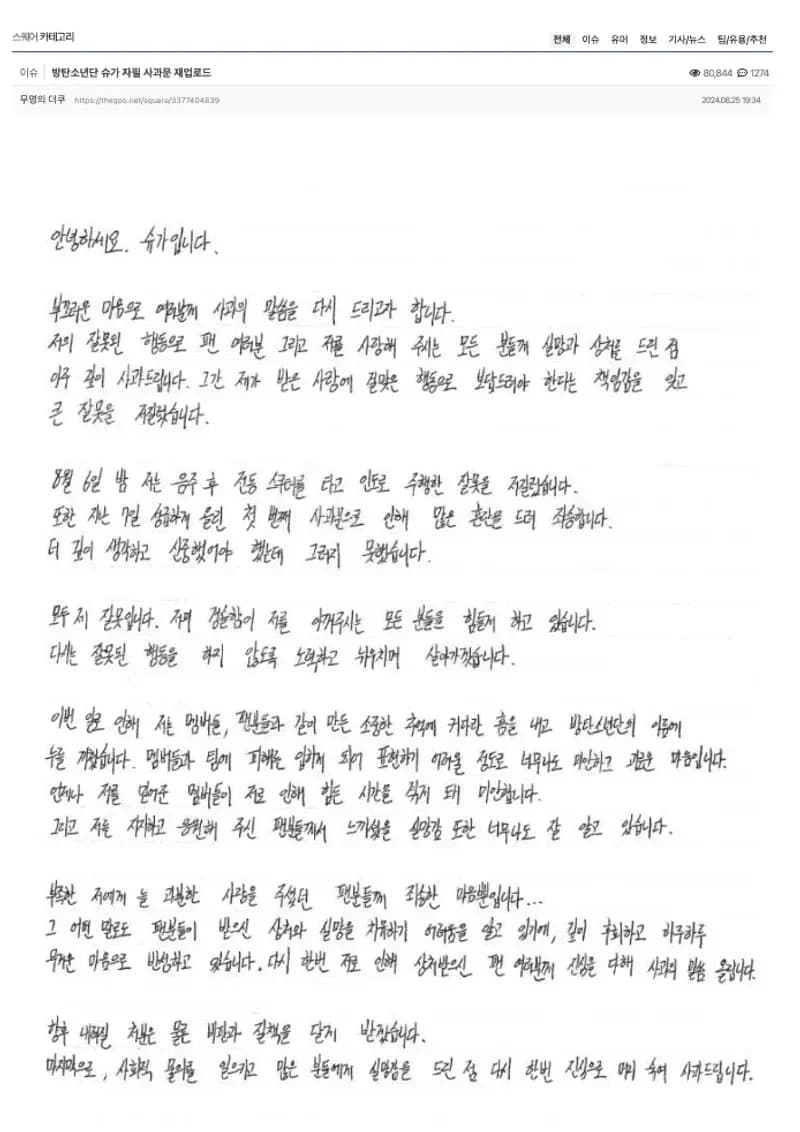 스퀘어 카테고리
전체 이슈 유머 정보 기사/뉴스 팁/유용/추천
이슈 방탄소년단 슈가 자필 사과문 재업로드 80,844 1274
무명의 더쿠 https://theqoo.net/square/3377404839 2024.08.25 19:34
안녕하세요. 슈가입니다.
부끄러운 마음으로 여러분께 사과의 말씀을 다시 드리고자 합니다.
저의 잘못된 행동으로 팬 여러분 그리고 저를 사랑해 주시는 모든 분들께 실망과 상처를 드린 점
아주 깊이 사과드립니다. 그간 제가 받은 사랑에 걸맞은 행동으로 보답드려야 한다는 책임감을 잊고
큰 잘못을 저질렀습니다.
8월 6일 밤 저는 음주 후 전동 스쿠터를 타고 인도로 주행한 잘못을 저질렀습니다.
또한 지난 7일 성급하게 올린 첫 번째 사과문으로 인해 많은 혼란을 드려 죄송합니다.
더 깊이 생각하고 신중했어야 했는데 그러지 못했습니다.
모두 제 잘못입니다. 저의 경솔함이 저를 아껴주시는 모든 분들을 힘들게 하고 있습니다.
다시는 잘못된 행동을 하지 않도록 노력하고 뉘우치며 살아가겠습니다.
이번 일로 인해 저는 멤버들, 팬분들과 같이 만든 소중한 추억에 커다란 흠을 내고 방탄소년단의 이름에
누를 끼쳤습니다. 멤버들과 팀에 피해를 입히게 되어 표현하기 어려울 정도로 너무나도 미안하고 괴로운 마음입니다.
언제나 저를 믿어준 멤버들이 저로 인해 힘든 시간을 겪게 돼 미안합니다.
그리고 저를 지지하고 응원해 주신 팬분들께서 느끼셨을 실망감 또한 너무나도 잘 알고 있습니다.
부족한 저에게 늘 과분한 사랑을 주셨던 팬분들께 죄송한 마음뿐입니다...
그 어떤 말로도 팬분들이 받으신 상처와 실망을 치유하기 어려움을 알고 있기에, 깊이 후회하고 하루하루
무거운 마음으로 반성하고 있습니다. 다시 한번 저로 인해 상처받으신 팬 여러분께 진심을 다해 사과의 말씀 올립니다.
향후 내려질 처분은 물론 비판과 질책을 달게 받겠습니다.
마지막으로, 사회적 물의를 일으키고 많은 분들에게 실망감을 드린 점 다시 한번 진심으로 머리 숙여 사과드립니다.